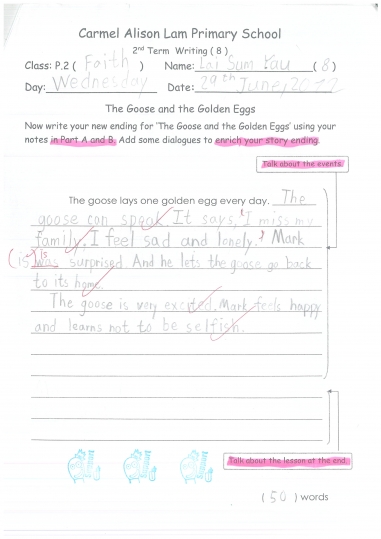 Carmel Alison Lam Primary School
2nd Term Writing ( 8 )
Class: P.2 ( Faith ) Name: Lai Sum Yau ( 8 )
Day: Wednesday Date: 29th June, 2022
The Goose and the Golden Eggs
Now write your new ending for 'The Goose and the Golden Eggs' using your
notes in Part A and B. Add some dialogues to enrich your story ending.
Talk about the events.
The goose lays one golden egg every day. The
goose can speak. It says, "I miss my
family. I feel sad and lonely." Mark
(is) was is surprised. And he lets the goose go back
to its home.
The goose is very excited. Mark feels happy
and learns not to be selfish.
Talk about the lesson at the end.
( 50 ) words